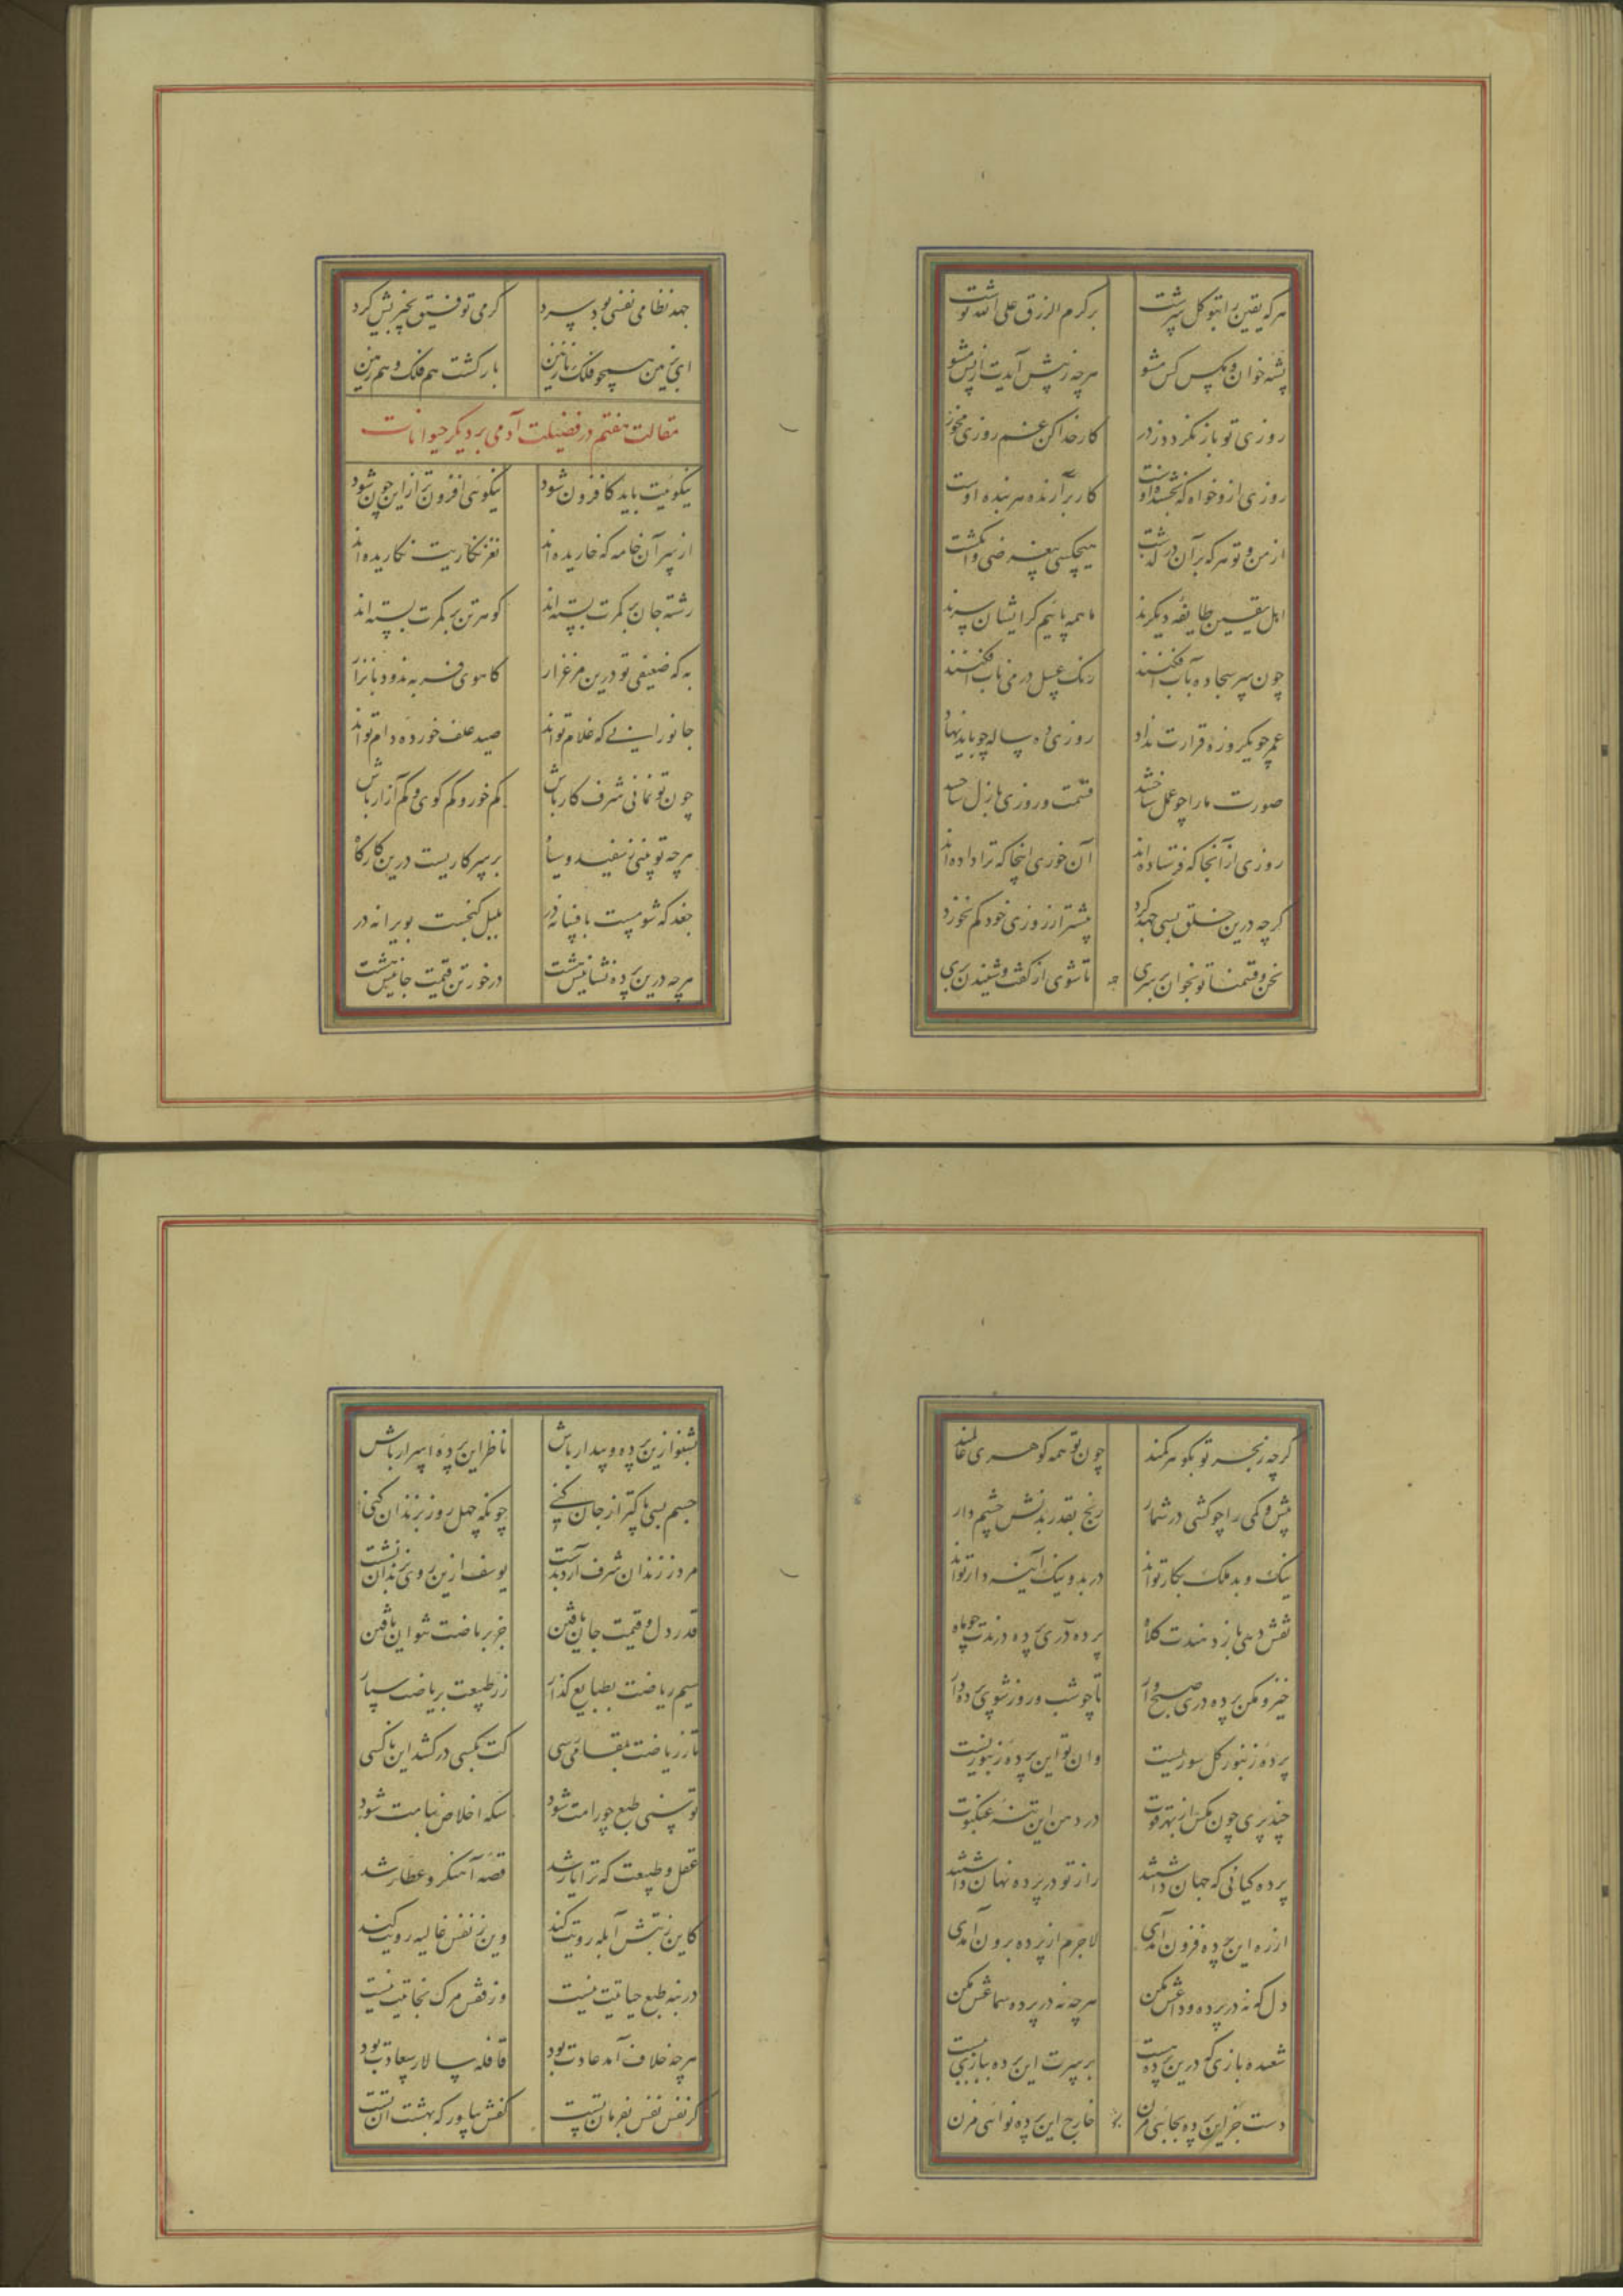 هرکه یقین را بتوکل سرشت برکرم الرزق علی الله نوشت
پشه خوان و مکس کس مشو هرچه ز پیش آیدت از پس مشو
روزی تو باز نکردد ز در کار خدا کن غم روزی مخور
روزی ازو خواه که بخشنده اوست کار برآرنده هر بنده اوست
از من و تو هرکه بر آن در گذشت هیچکسی بیغرضی وا نکشت
اهل یقین طایفه دیکرند ما همه پائیم کر ایشان سرند
چون سر سجاده بآب افکنند رنک عسل در می ناب افکنند
عمر چو یکروزه قرارت نداد روزی ده ساله چو باید نهاد
صورت ما را چو عمل ساختند قسمت و روزی بازل ساختند
روزی از آنجا که فرستاده‌اند آن خوری اینجا که ترا داده‌اند
کرچه درین خلق بسی جهد کرد پیشتر از روزی خود کم نخورد
نحن قسمنا تو بخوان بر سری تا شوی از گفت و شنیدن بری
جهد نظامی نفسی بود سرد کرمی توفیق بخیریش کرد
ای بزمین همچو فلک نازنین بارکشت هم فلک و هم زمین
مقالت هفتم در فضیلت آدمی بر دیکر حیوانات
نیکوئیت باید کافزون شود نیکوئی افزون‌تر ازین چون شود
از سر آن خامه که خاریده‌اند نغز نکاریت نکاریده‌اند
رشته جان بر کمرت بسته‌اند کوهر تن بر کمرت بسته‌اند
به که ضعیفی تو درین مرغزار کاهوی فربه ندود با نزار
جانورانی که غلام تواند صید علف خورده دام تواند
چون تو نمانی شرف کار باش کم خور و کم کوی و کم آزار باش
هرچه تو بینی ز سفید و سیاه بر سر کاریست درین کارکاه
جغد که شومست بافسانه در بلبل کنجست بویرانه در
هرچه درین پرده نشانیش هست درخور تن قیمت جانیش هست
کرچه ز بحر تو بکوهر کمند چون تو همه کوهری عالمند
بیش و کمی را چو کشی در شمار رنج بقدر بدنش چشم دار
نیک و بد ملک بکار تواند در بد و نیک آینه‌دار تواند
نقش دهی باز دهندت کلاه پرده دری پرده درندت چو ماه
خیز و مکن پرده دری صبح وار تا چو شب و روز شوی پرده دار
پرده زنبور کل سوریست وان تو این پرده زنبوریست
چند پری چون مکس از بهر قوت در دهن این تنه عنکبوت
پرده کیانی که جهان داشتند راز تو در پرده نهان داشتند
از ره این پرده فزون آمدی لاجرم از پرده برون آمدی
دل که نه در پرده وداعش مکن هرچه نه در پرده سماعش مکن
شعبده بازی که درین پرده هست بر سرت این پرده ببازی نبست
دست جز این پرده بجائی مزن خارج این پرده نوائی مزن
بشنو ازین پرده و بیدار باش ناظر این پرده اسرار باش
جسم بسی پاکتر از جان کنی چونکه چهل روز بزندان کنی
مرد ز زندان شرف آرد بدست یوسف ازین روی بزندان نشست
قدر دل و قیمت جان یافتن جز بریاضت نتوان یافتن
سیم ریاضت بطبایع گذار زر طبیعت بریاضت سپار
تا ز ریاضت بمقامی رسی کت بکسی در کشد این ناکسی
توسنی طبع چو رامت شود سکه اخلاص بنامت شود
عقل و طبیعت که ترا یار شد قصه آهنکر و عطار شد
کاین ز تبش آبله رویت کند وین ز نفس غالیه رویت کند
در بنه طبع حیاتیت نیست وز قفس مرک نجاتیت نیست
هرچه خلاف آمد عادت بود قافله سالار سعادت بود
کر نفس نفس بفرمان تست کفش بیاور که بهشت آن تست